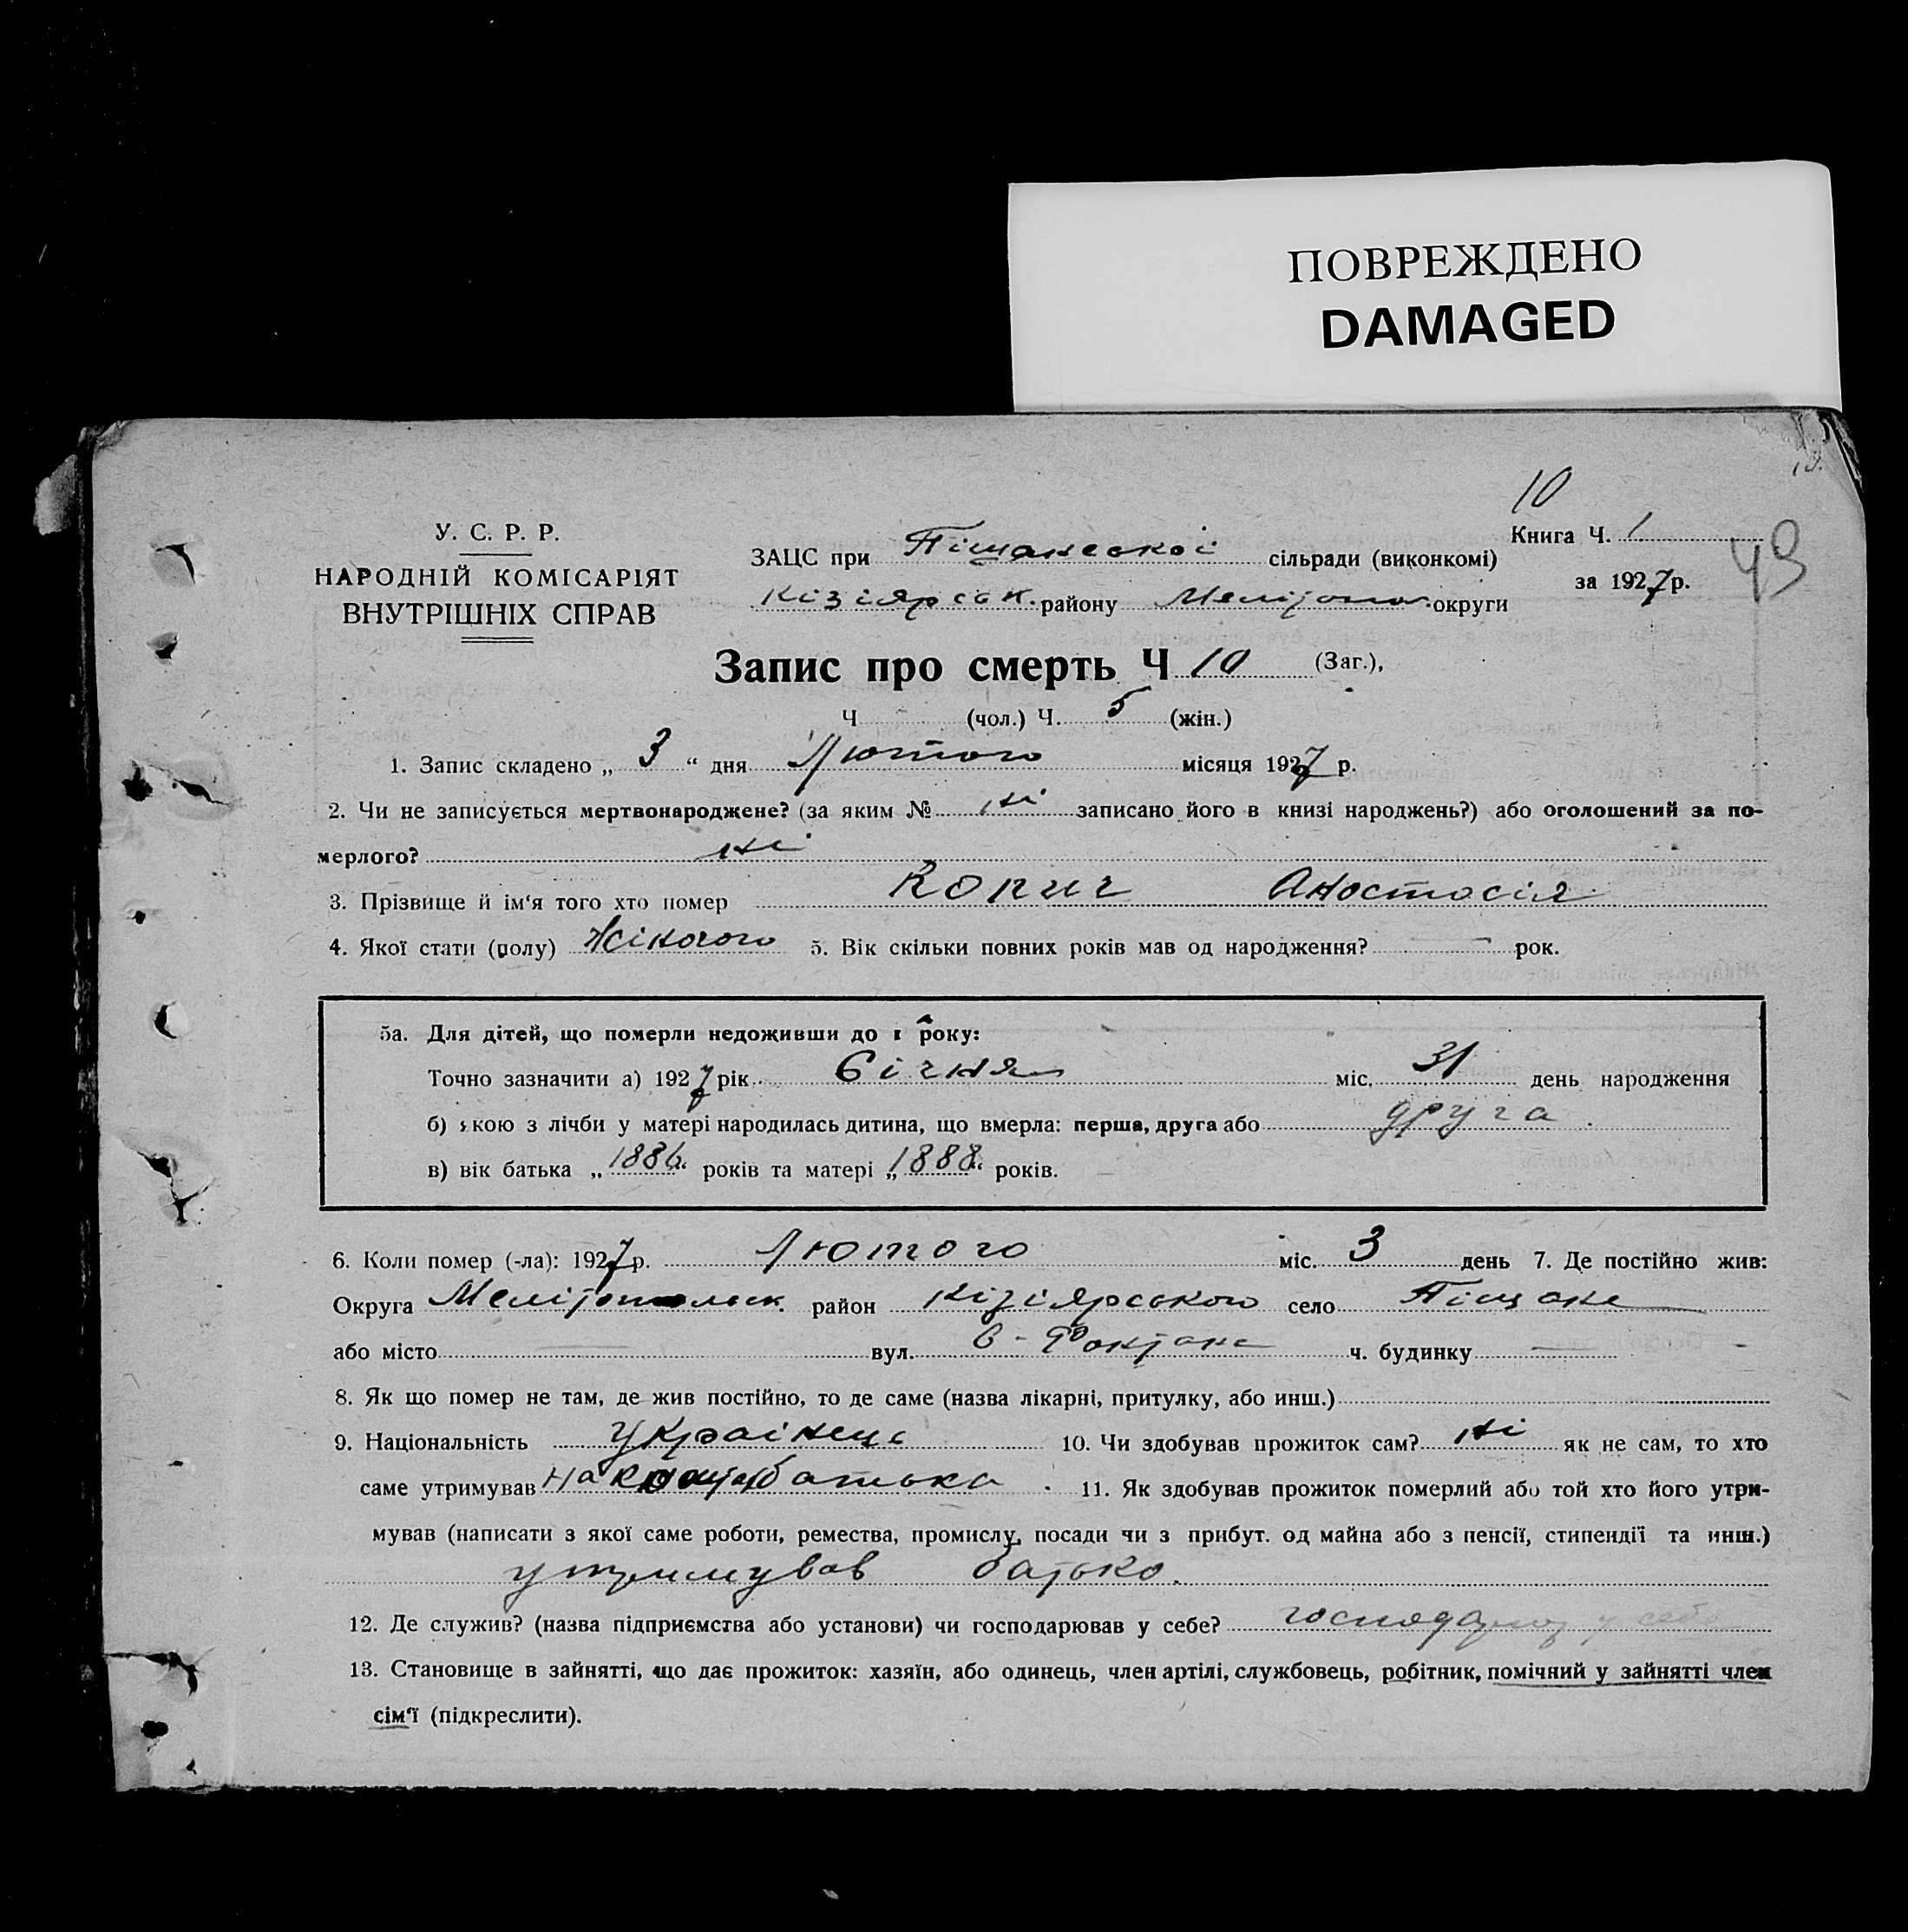 ПОВРЕЖДЕНО
DAMAGED
10
У. С. Р. Р.
НАРОДНІЙ КОМІСАРІЯТ
ВНУТРІШНІХ СПРАВ
ЗАЦС при Піщанської сільради (виконкомі)
Кізіярськ. району Мелітоп. округи
Книга Ч. 1
за 1927 р.
49
Запис про смерть Ч 10 (Заг.),
Ч (чол.) Ч. 5 (жін.)
1. Запис складено „ 3 “ дня Лютого місяця 1927 р.
2. Чи не записується мертвонароджене? (за яким № ні записано його в книзі народжень?) або оголошений за по-
мерлого? ні
3. Прізвище й ім‘я того хто помер Копич Аностосія
4. Якої стати (полу) Жіночого 5. Вік скільки повних років мав од народження? — рок.
5а. Для дітей, що померли недоживши до 1 року:
Точно зазначити а) 1927 рік Січня міс. 31 день народження
б) якою з лічби у матері народилась дитина, що вмерла: перша, друга або друга
в) вік батька „ 1886 “ років та матері „ 1888 “ років.
6. Коли помер (-ла): 1927 р. Лютого міс. 3 день 7. Де постійно жив:
Округа Мелітопольск. район Кізіярського село Піщане
або місто — вул. В-Фонтане ч. будинку —
8. Як що помер не там, де жив постійно, то де саме (назва лікарні, притулку, або инш.)
9. Національність Украінець 10. Чи здобував прожиток сам? ні як не сам, то хто
саме утримував на кошта батька 11. Як здобував прожиток померлий або той хто його утри-
мував (написати з якої саме роботи, ремества, промислу, посади чи з прибут. од майна або з пенсії, стипендії та инш.)
утримував батько.
12. Де служив? (назва підприємства або установи) чи господарював у себе? у себе
13. Становище в зайнятті, що дає прожиток: хазяїн, або одинець, член артілі, службовець, робітник, помічний у зайнятті член
сім‘ї (підкреслити).